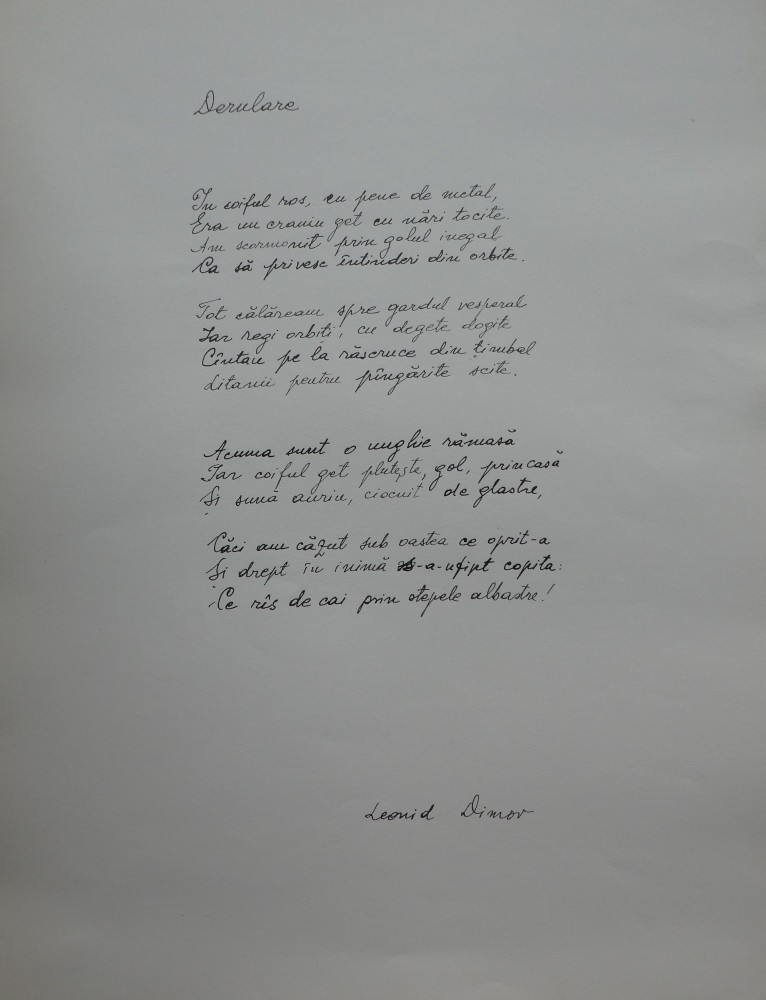 Derulare
In coiful ros, cu pene de metal,
Era un craniu get cu nări tocite.
Am scormonit prin golul inegal
Ca să privesc întinderi din orbite.
Tot călăream spre gardul vesperal
Iar regi orbiți, cu degete dogite
Cîntau pe la răscruce din țimbal
Litanii pentru pîngărite scite.
Acuma sunt o unghie rămasă
Iar coiful get plutește, gol, prin casă
Și sună auriu, ciocnit de glastre,
Căci am căzut sub oastea ce oprit-a
Și drept în inimă -a-nfipt copita:
Ce rîs de cai prin stepele albastre!
Leonid Dimov